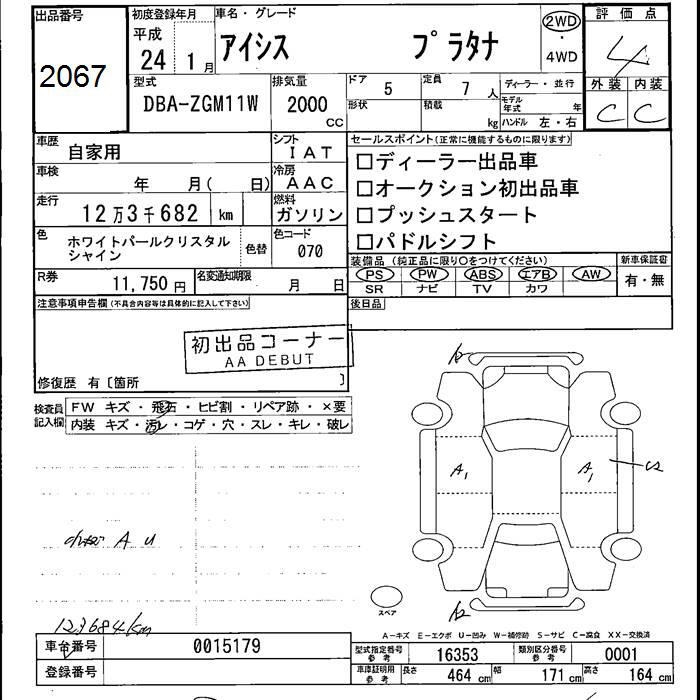 出品番号
2067
初度登録年月
平成
24 1月
車名・グレード
アイシス プラタナ
2WD
・
4WD
評価点
4
外装 内装
C C
型式
DBA-ZGM11W
排気量
2000
CC
ドア
5
定員
7 人
形状
積載
kg
ディーラー・並行
モデル
年式 年
ハンドル 左・右
車歴
自家用
シフト
IAT
車検
年 月( 日)
冷房
AAC
走行
12万3千682 km
燃料
ガソリン
色
ホワイトパールクリスタル
シャイン
色替
色コード
070
R券
11,750 円
名変通知期限
月 日
セールスポイント(正常に機能するものに限ります)
□ディーラー出品車
□オークション初出品車
□プッシュスタート
□パドルシフト
装備品(純正品に限り○をつけてください)
PS PW ABS エアB AW
SR ナビ TV カワ
新車保証書
有・無
後日品
注意事項申告欄(不具合内容等は具体的に記入して下さい)
初出品コーナー
AA DEBUT
修復歴 有〔箇所 〕
検査員
記入欄
FW キズ・飛石・ヒビ割・リペア跡・×要
内装 キズ・汚レ・コゲ・穴・スレ・キレ・破レ
A1 A1
A U
123684km
スペア
A-キズ E-エクボ U-凹み W-補修跡 S-サビ C-腐食 XX-交換済
車台番号
0015179
登録番号
型式指定番号
参考
16353
類別区分番号
参考
0001
車庫証明用
参考
長さ
464 cm
幅
171 cm
高さ
164 cm